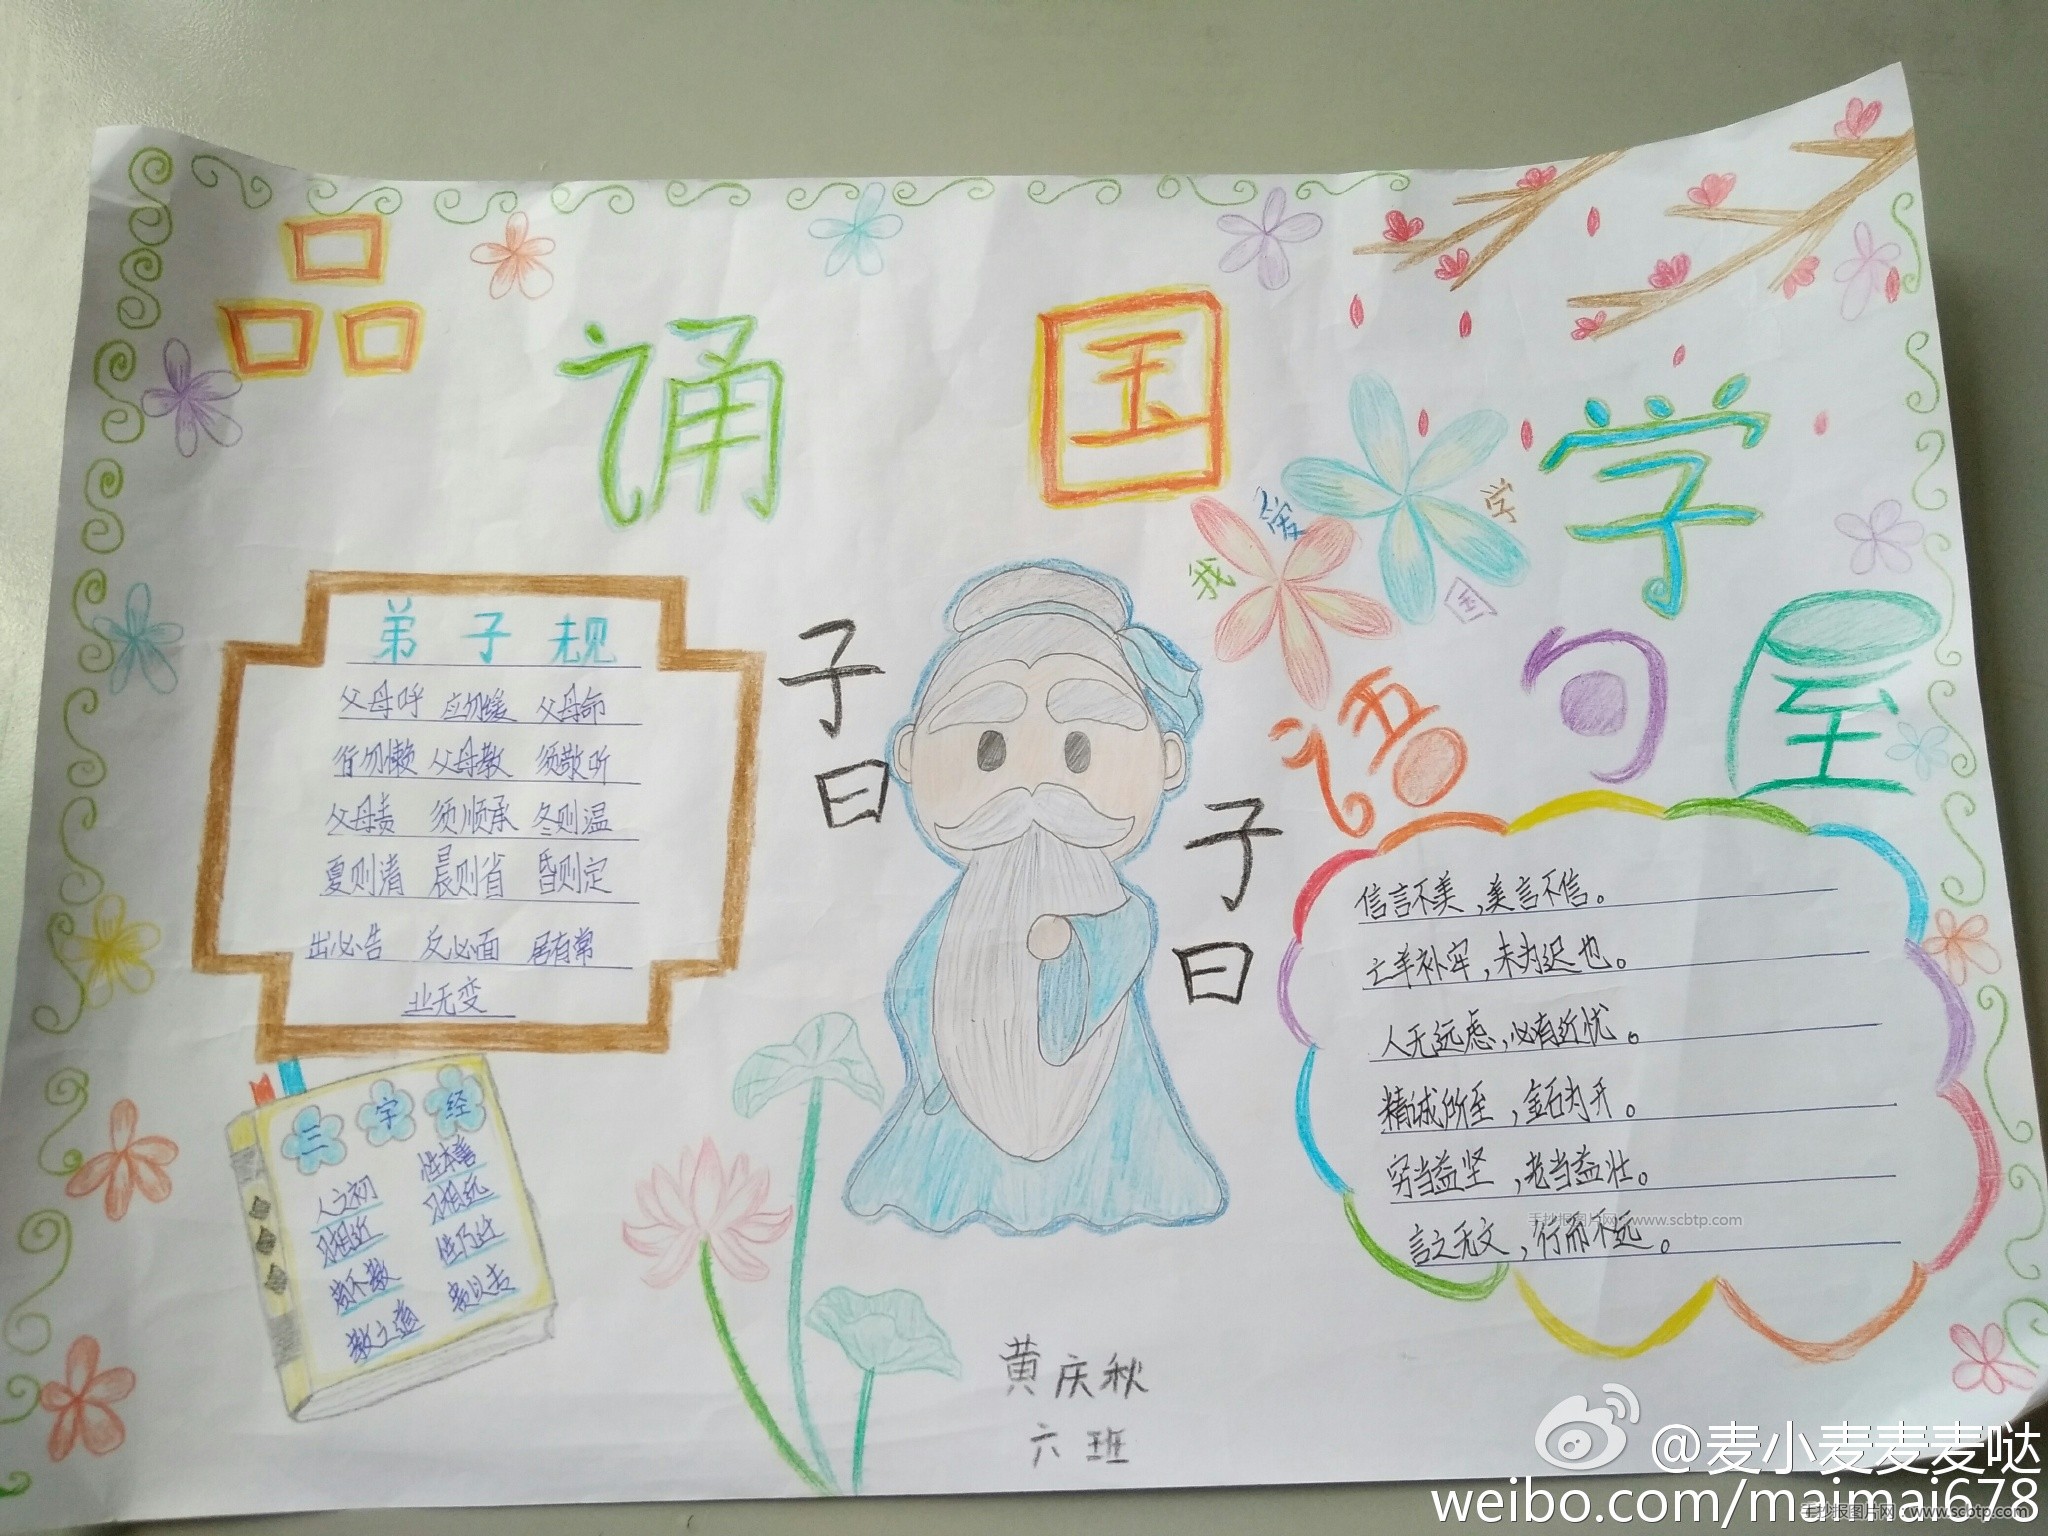 品诵国学
我爱国学
弟子规
父母呼 应勿缓 父母命
行勿懒 父母教 须敬听
父母责 须顺承 冬则温
夏则清 晨则省 昏则定
出必告 反必面 居有常
业无变
子曰
子曰
语句屋
信言不美,美言不信。
亡羊补牢,未为迟也。
人无远虑,必有近忧。
精诚所至,金石为开。
穷当益坚,老当益壮。
言之无文,行而不远。
三字经
人之初 性本善
习相近 习相远
苟不教 性乃迁
教之道 贵以专
黄庆秋
六班
手抄报图片网:www.scbtp.com
@麦小麦麦麦哒
weibo.com/maimai678
手抄报图片网:www.scbtp.com